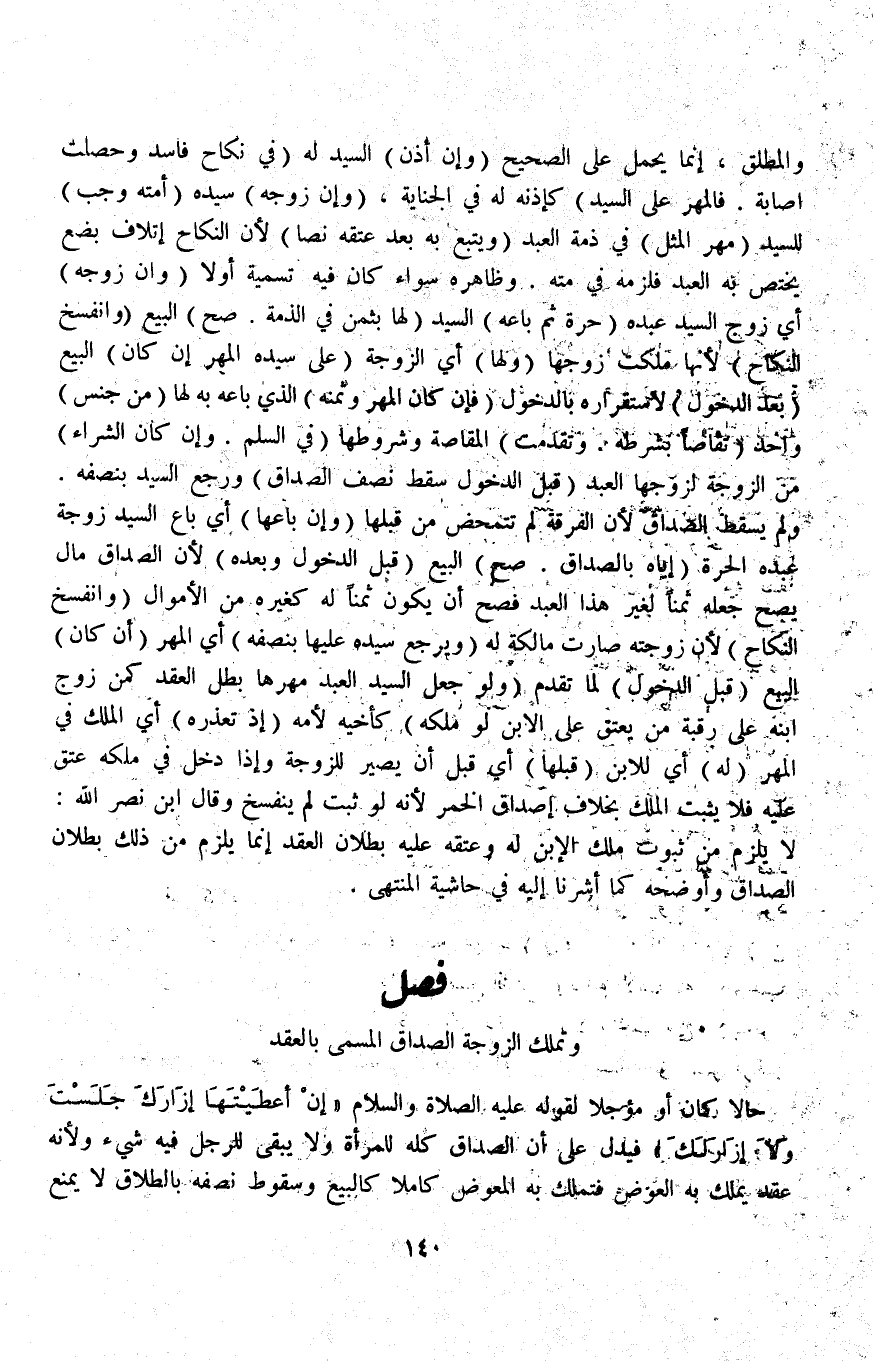 والمطلق ، إنما يحمل على الصحيح ( وإن أذن ) السيد له ( في نكاح فاسد وحصلت
اصابة . فالمهر على السيد ) كإذنه له في الجناية ، ( وإن زوجه ) سيده ( أمته وجب )
للسيد ( مهر المثل ) في ذمة العبد ( ويتبع به بعد عتقه نصا ) لأن النكاح إتلاف بضع
يختص به العبد فلزمه في مته . وظاهره سواء كان فيه تسمية أولا ( وان زوجه )
أي زوج السيد عبده ( حرة ثم باعه ) السيد ( لها بثمن في الذمة . صح ) البيع ( وانفسخ
النكاح ) لأنها ملكت زوجها ( ولها ) أي الزوجة ( على سيده المهر إن كان ) البيع
( بعد الدخول ) لاستقراره بالدخول ( فإن كان المهر وثمنه ) الذي باعه به لها ( من جنس )
واحد ( تقاصا بشرطه . وتقدمت ) المقاصة وشروطها ( في السلم . وإن كان الشراء )
من الزوجة لزوجها العبد ( قبل الدخول سقط نصف الصداق ) ورجع السيد بنصفه .
ولم يسقط الصداق لأن الفرقة لم تتمحض من قبلها ( وإن باعها ) أي باع السيد زوجة
عبده الحرة ( إياه بالصداق . صح ) البيع ( قبل الدخول وبعده ) لأن الصداق مال
يصح جعله ثمناً لغير هذا العبد فصح أن يكون ثمناً له كغيره من الأموال ( وانفسخ
النكاح ) لأن زوجته صارت مالكة له ( ويرجع سيده عليها بنصفه ) أي المهر ( أن كان )
البيع ( قبل الدخول ) لما تقدم ( ولو جعل السيد العبد مهرها بطل العقد كمن زوج
ابنه على رقبة من يعتق على الابن لو ملكه ) كأخيه لأمه ( إذ تعذره ) أي الملك في
المهر ( له ) أي للابن ( قبلها ) أي قبل أن يصير للزوجة وإذا دخل في ملكه عتق
عليه فلا يثبت الملك بخلاف إصداق الخمر لأنه لو ثبت لم ينفسخ وقال ابن نصر الله :
لا يلزم من ثبوت ملك الإبن له وعتقه عليه بطلان العقد إنما يلزم من ذلك بطلان
الصداق وأوضحه كما أشرنا إليه في حاشية المنتهى .
فصل
وتملك الزوجة الصداق المسمى بالعقد
حالا كان أو مؤجلا لقوله عليه الصلاة والسلام « إنْ أعطَيْتَهَا إزَارَكَ جَلَسْتَ
وَلاَ إزَارَلَكَ » فيدل على أن الصداق كله للمرأة ولا يبقى للرجل فيه شيء ولأنه
عقد يملك به العوض فتملك به المعوض كاملا كالبيع وسقوط نصفه بالطلاق لا يمنع
١٤٠